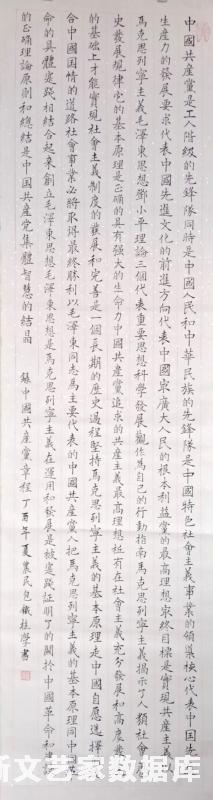 中國共產黨是工人階級的先鋒隊同時是中國人民和中華民族的先鋒隊是中國特色社會主義事業的領導核心代表中國先
生產力的發展要求代表中國先進文化的前進方向代表中國最廣大人民的根本利益黨的最高理想最終目標是實現共產主義
馬克思列寧主義毛澤東思想鄧小平理論三個代表重要思想科學發展觀作為自己的行動指南馬克思列寧主義揭示了人類社會
史發展規律它的基本原理是正確的具有强大的生命力中國共產黨追求的共產主義最高理想衹有在社會主義充分發展和高度發
的基礎上才能實現社會主義制度的發展和完善是一個長期的歷史過程堅持馬克思列寧主義的基本原理走中國自愿選擇
合中國國情的道路社會事業必將取得最終勝利以毛澤東同志為主要代表的中國共產黨人把馬克思列寧主義的基本原理同中國
命的具體實踐相結合起來創立毛澤東思想毛澤東思想是馬克思列寧主義在運用和發展是被實踐証明了的關於中國革命和建
的正確理論原則和總結是中国共産党集體智慧的結晶 錄中國共產黨章程丁酉年夏農民包鐵柱學書
新文艺家数据库